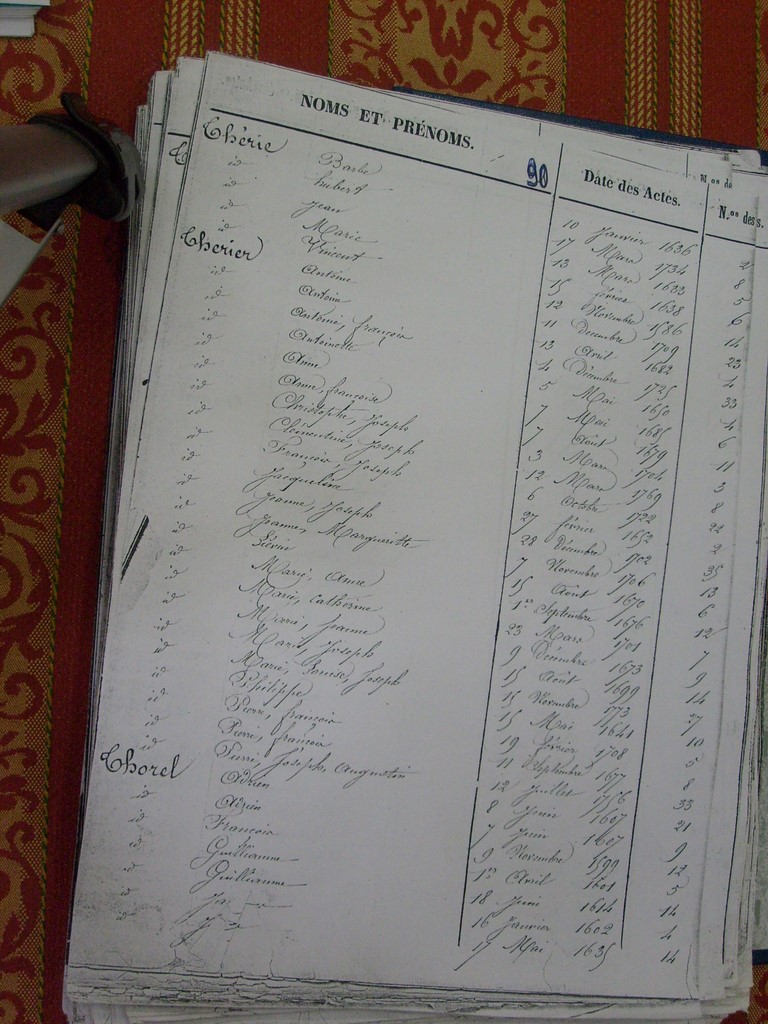 NOMS ET PRÉNOMS. 90 Date des Actes. N.os des
Thérie Barbe 10 Janvier 1636 2
id hubert 17 Mars 1734 8
id Jean 13 Mars 1633 5
id Marie 15 février 1638 6
id Vincent 12 Novembre 1586 14
Therier Antoine 11 Decembre 1709 23
id Antoin 13 Avril 1682 4
id Antoine, françois 4 Décembre 1725 33
id Antoinette 5 Mai 1650 4
id Anne 7 Mai 1685 6
id Anne, françoise 7 Août 1679 11
id Christophe, Joseph 3 Mars 1704 3
id Clémentine, Joseph 12 Mars 1769 8
id François, Joseph 6 Octobre 1722 22
id Jacqueline 27 février 1652 2
id Jeanne, Joseph 28 Décembre 1702 35
id Jeanne, Marguerite 7 Novembre 1706 13
id Liévin 15 Août 1670 6
id Marie, Anne 1er Septembre 1676 12
id Marie, Catherine 23 Mars 1701 7
id Marie, Jeanne 9 Décembre 1673 9
id Marie, Joseph 15 Août 1699 14
id Marie, Louise, Joseph 15 Novembre 1773 27
id Philippe 15 Mai 1641 10
id Pierre, françois 19 février 1708 5
id Pierre, françois 11 Septembre 1677 8
id Pierre, Joseph, Augustin 12 Juillet 1756 33
Thorel Adrien 8 Juin 1607 21
id Adrien 7 Juin 1607 9
id François 9 Novembre 1599 12
id Guilliaume 1er Avril 1601 5
id Guilliaume 18 Juin 1614 14
id 16 Janvier 1602 4
id 17 Mai 1635 14